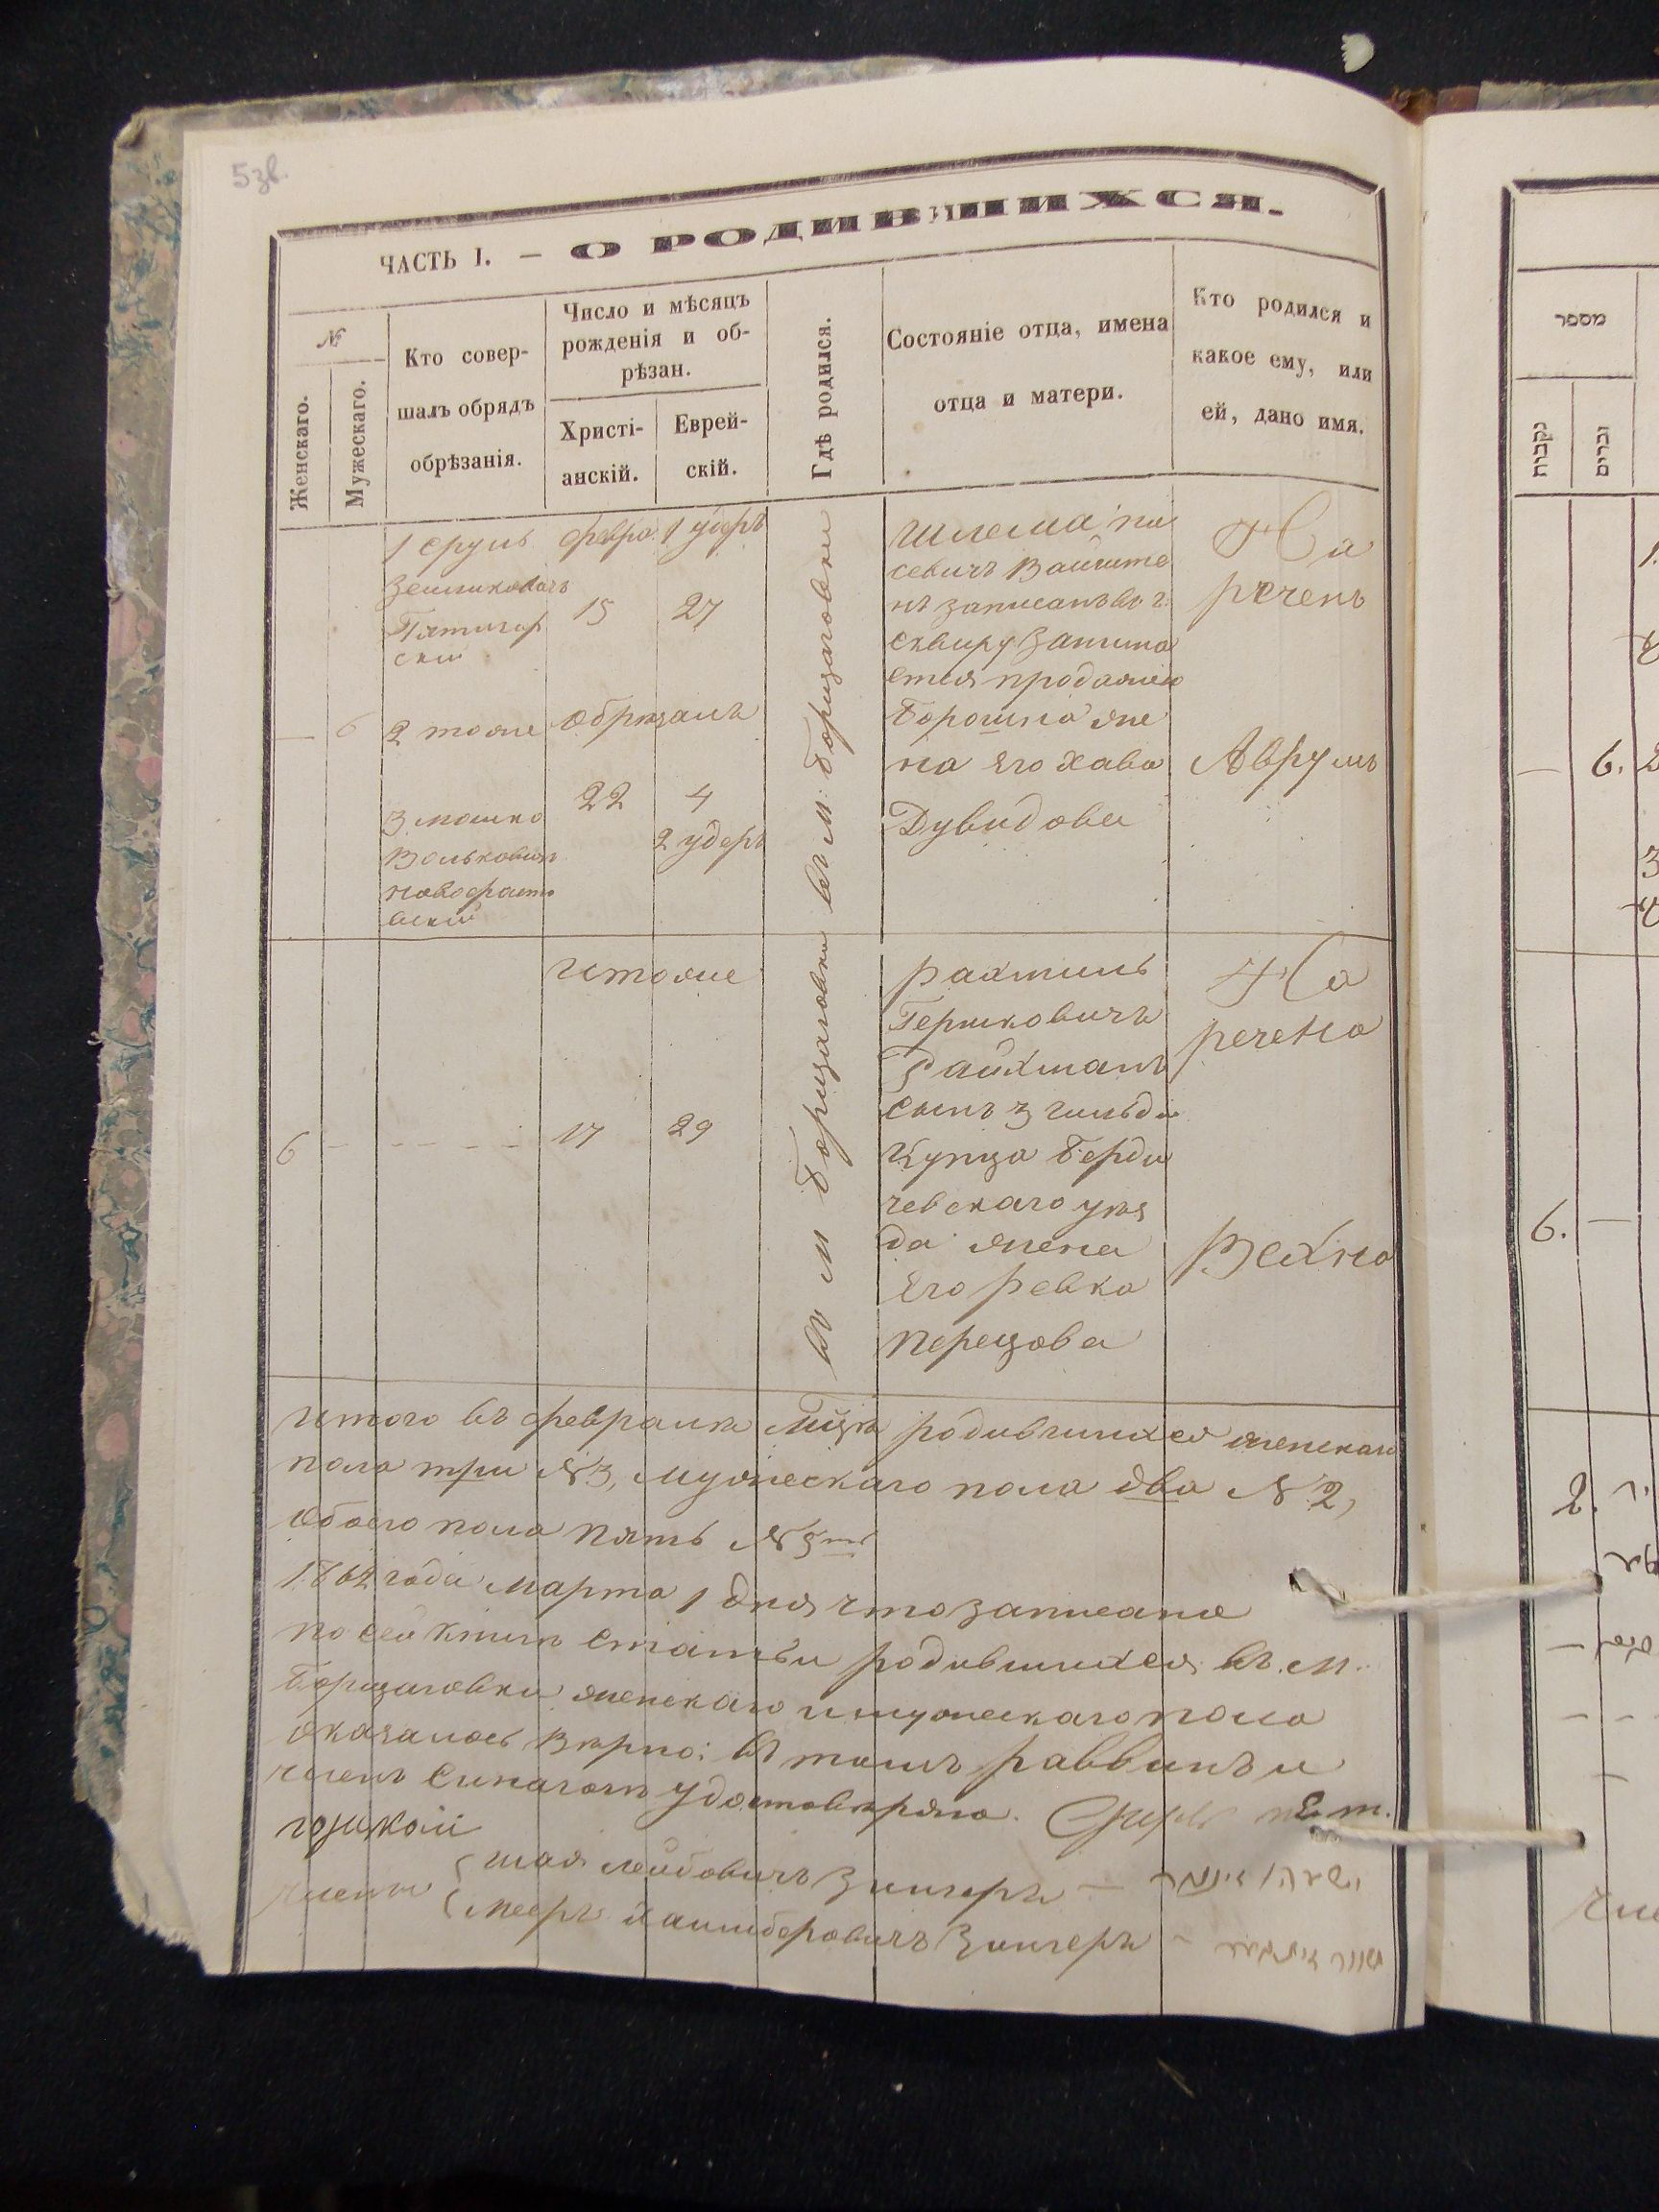 5зв.
ЧАСТЬ I. — О РОДИВШИХСЯ.
№
Женскаго.
Мужескаго.
Кто совер-
шалъ обрядъ
обрѣзанія.
Число и мѣсяцъ
рожденія и об-
рѣзан.
Христі-
анскій.
Еврей-
скій.
Гдѣ родился.
Состояніе отца, имена
отца и матери.
Кто родился и
какое ему, или
ей, дано имя.
—
6
1 Сруль
Пятигор
ский
2 тоже
3 мошко
Вольковичъ
Февра
15
Обрѣзанъ
22
1 удеръ
27
4
2 удеръ
въ м: Борщаговки
Шлема
севичъ Вайнште
нъ записанъ въ г.
Сквиру Занима
ется продажею
Борошна же
на Его Хава
Дувидова
На
реченъ
Аврумъ
6
— — — — —
итоже
17
29
въ м Борщаговки
Рахмиль
Гершковичъ
сынъ 3 гильди
Купца Берди
чевскаго уѣз
да жена
Его Ревка
Перецова
На
речена
Рехна
Итого въ Февралѣ Мцѣ родившихся женскаго
пола три № 3, мужескаго пола два № 2,
Обоего пола Пять № 5
1862 года Марта 1 дня что записание
по сей Книгѣ Статьи родившихся въ м.
Борщаговки женскаго и мужескаго пола
Оказалось Вѣрно; въ томъ раввинъ и
членъ Синагоги удостовѣряю.
члены { Шая Лейбовичъ Зингеръ —
Мееръ Зингеръ —
מספר
נקבות
זכרים
— 6. 2
3
6. —
2.